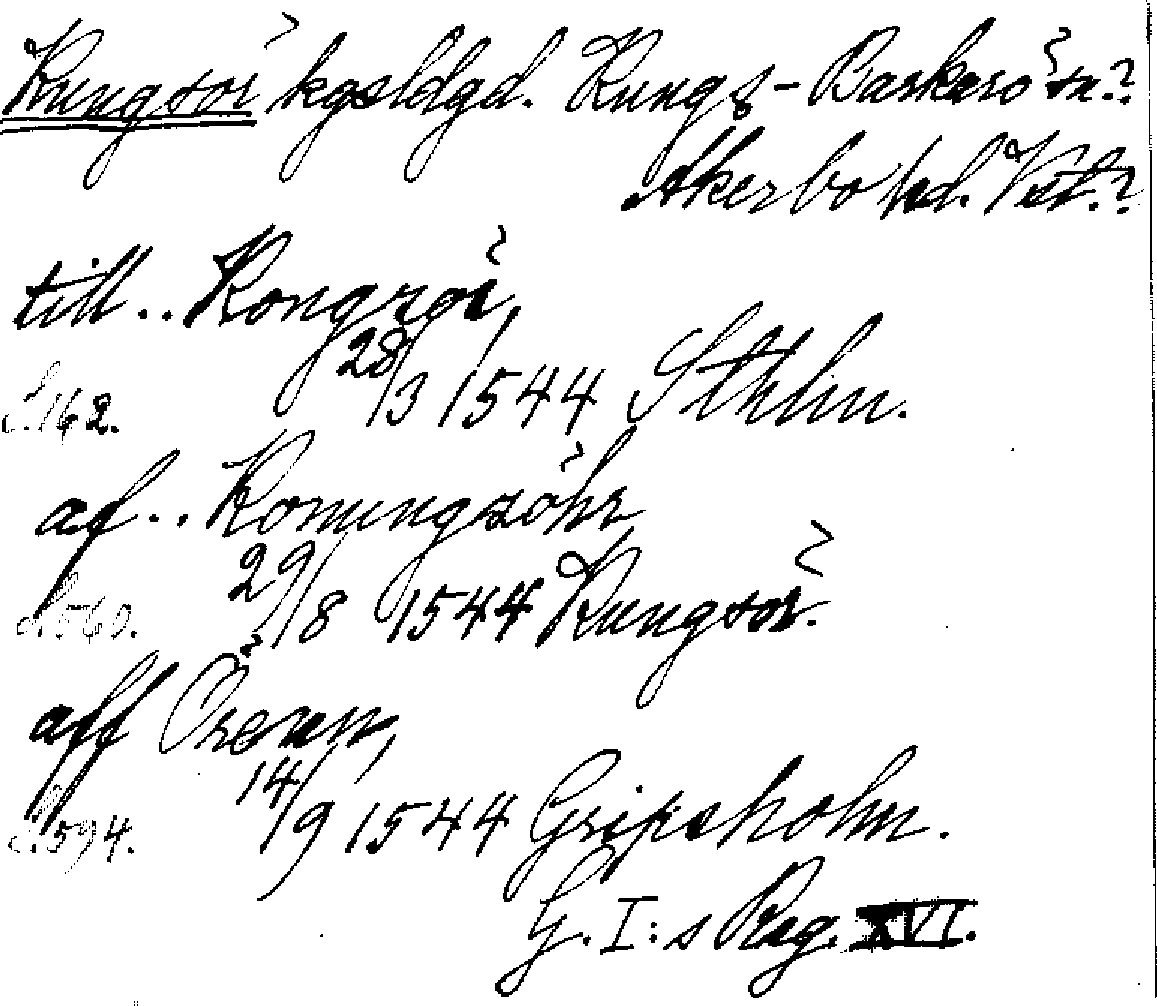 Kungsör kgsldgd. Kungs-Barkarö sn?
Åkerbo hd. Vstl.?
till.. Kongzör,
s. 162. 28/3 1544 Sthlm.
af.. Konungzöhr,
s. 560. 29/8 1544 Kungsör.
aff Öreren,
s. 594. 14/9 1544 Gripsholm.
G. I:s Reg. XVI.